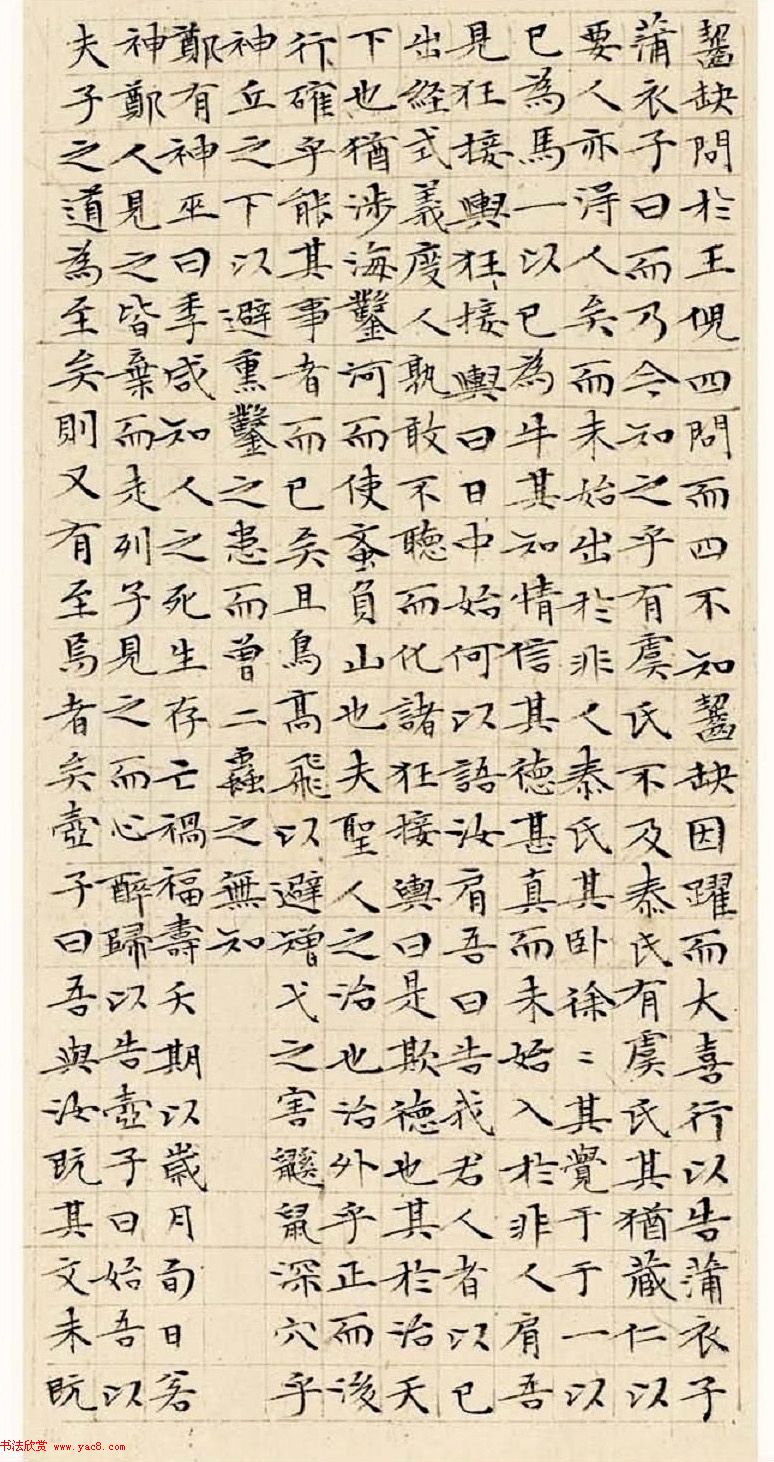 齧缺問於王倪四問而四不知齧缺因躍而大喜行以告蒲衣子
蒲衣子曰而乃今知之乎有虞氏不及泰氏有虞氏其猶藏仁以
要人亦得人矣而未始出於非人泰氏其卧徐〻其覺于于一以
已為馬一以已為牛其知情信其徳甚真而未始入於非人肩吾
見狂接輿狂接輿曰日中始何以語汝肩吾曰告我君人者以已
出経式義度人孰敢不聴而化諸狂接輿曰是欺徳也其於治天
下也猶涉海鑿河而使蚉負山也夫聖人之治也治外乎正而後
行確乎能其事者而已矣且鳥髙飛以避矰弋之害鼷鼠深穴乎
神丘之下以避熏鑿之患而曽二蟲之無知
鄭有神巫曰季咸知人之死生存亡禍福壽夭期以歳月旬日若
神鄭人見之皆棄而走列子見之而心醉歸以告壺子曰始吾以
夫子之道為至矣則又有至焉者矣壺子曰吾與汝既其文未既
书法欣赏 www.yac8.com